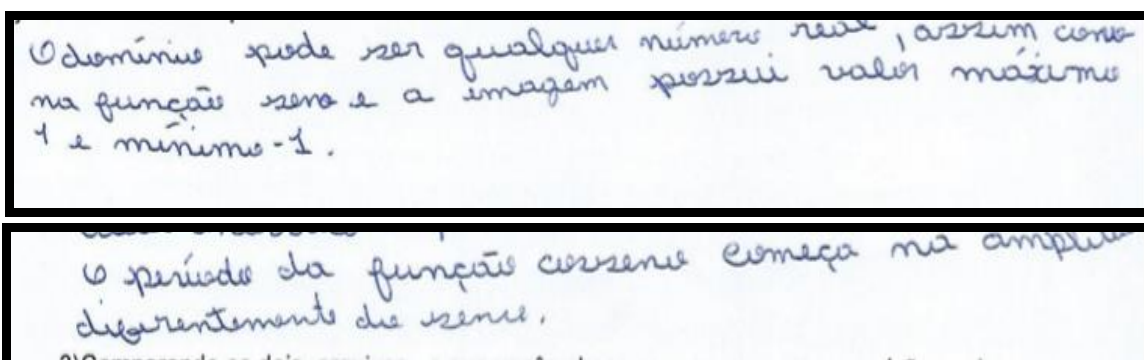 O domínio pode ser qualquer número real, assim como
na função seno e a imagem possui valor máximo
1 e mínimo -1.
o período da função cosseno começa na
diferentemente do seno.